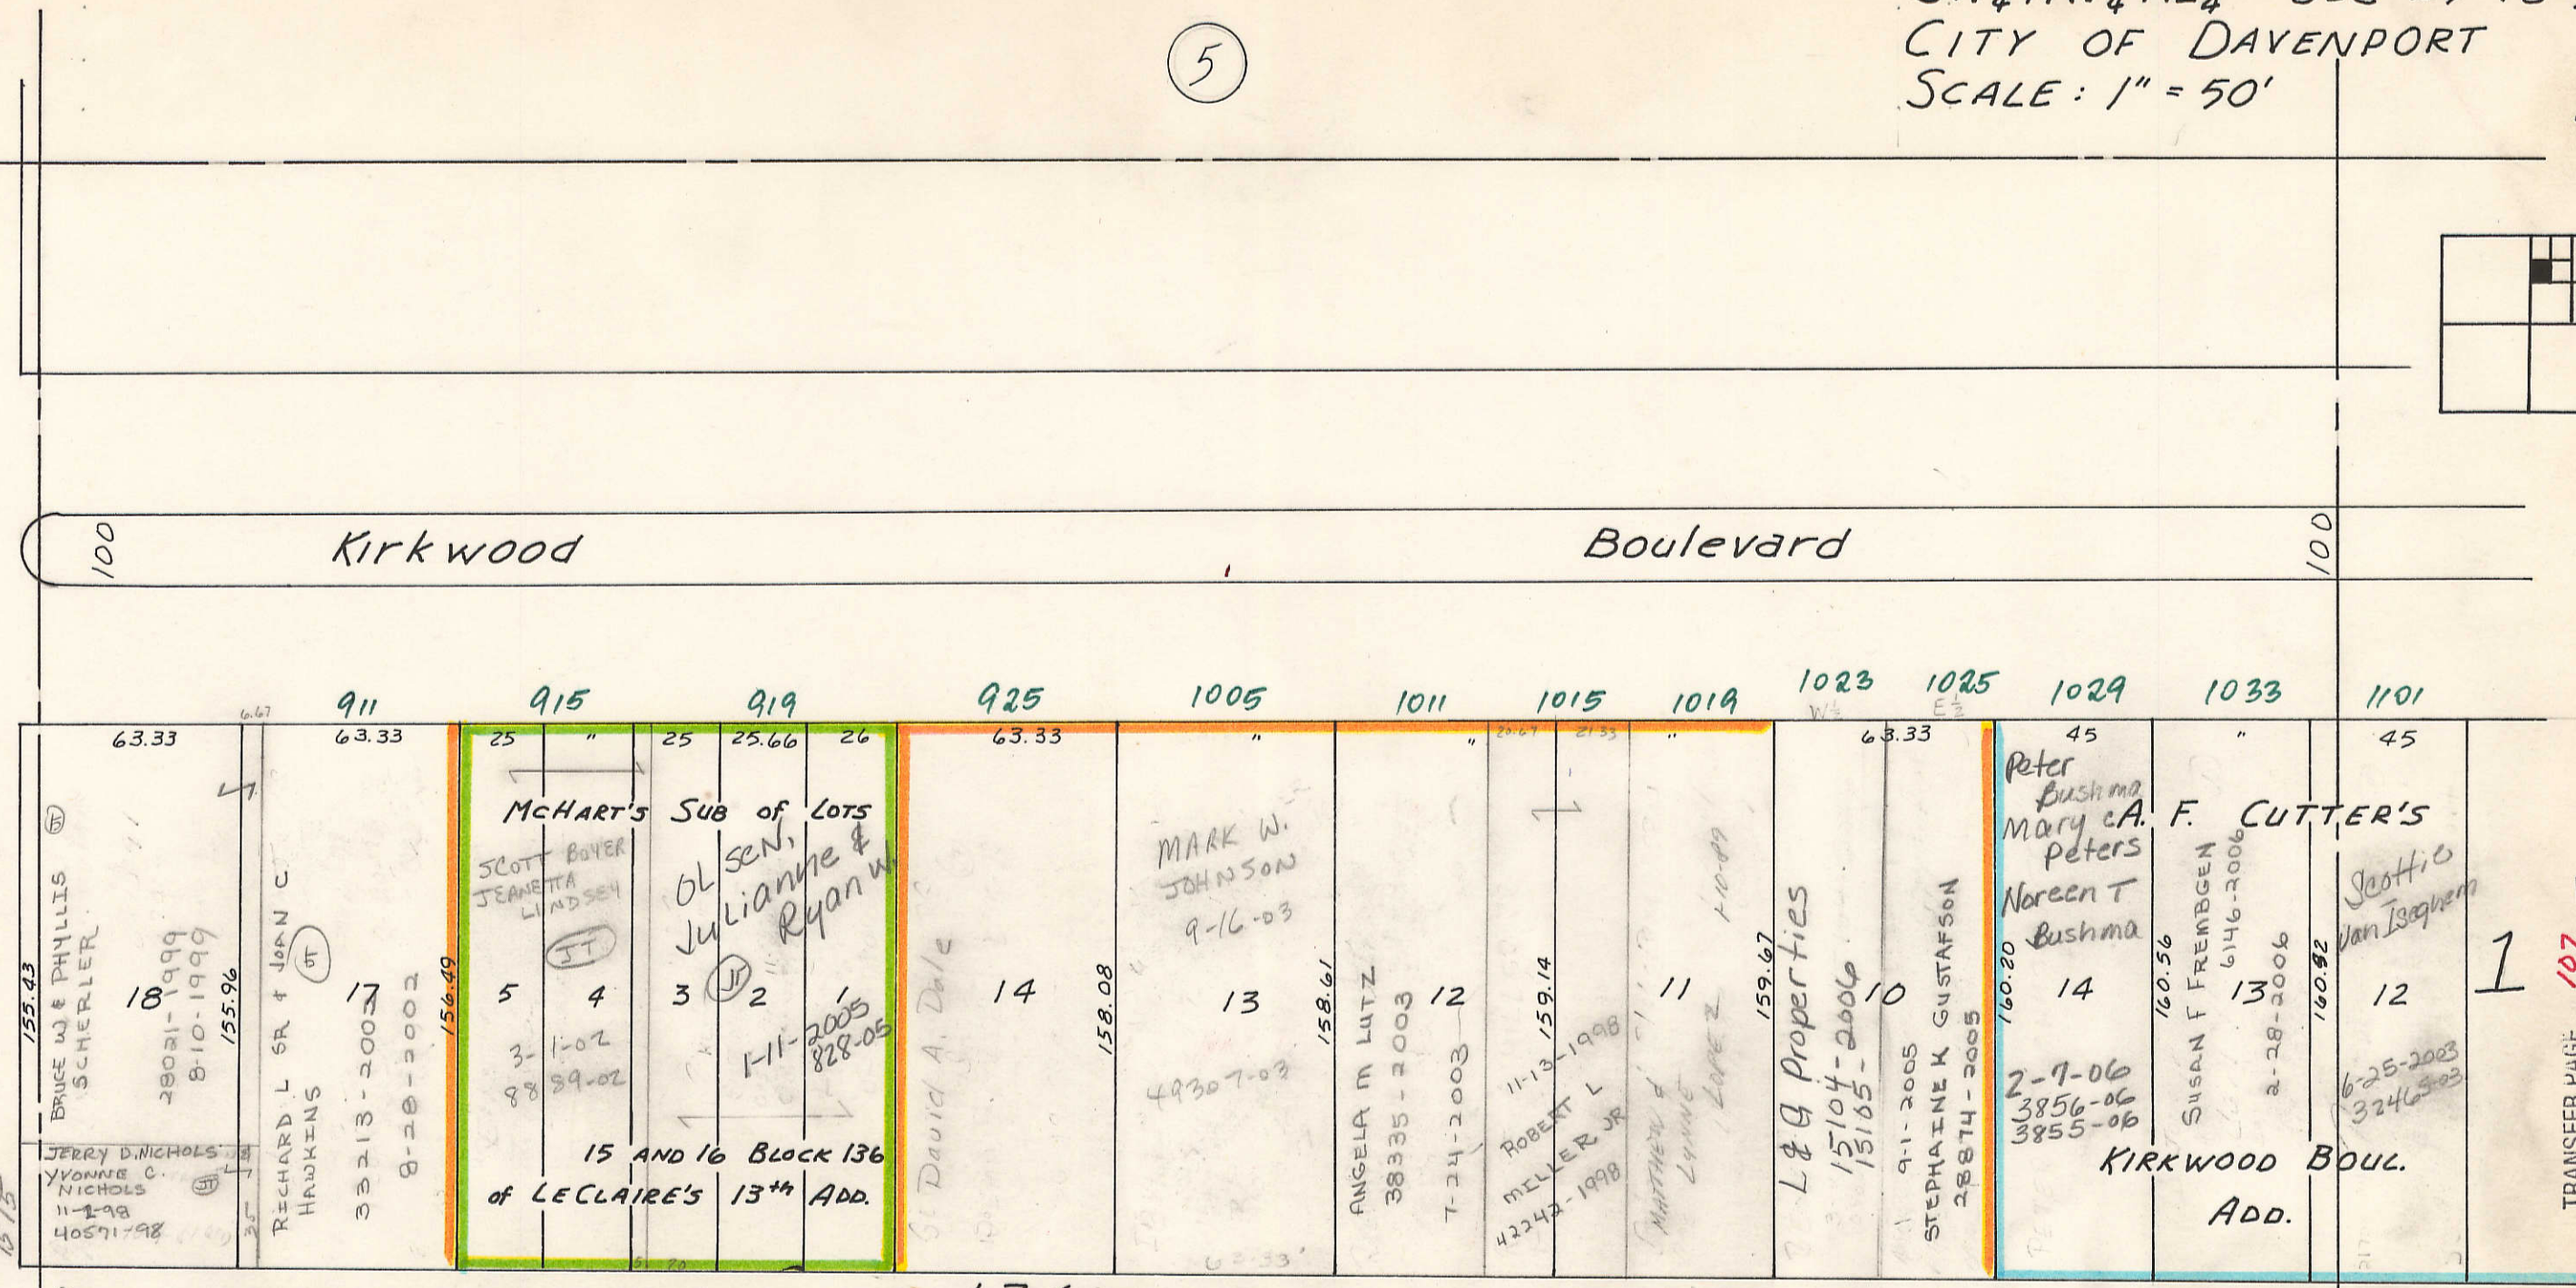 5
CITY OF DAVENPORT
SCALE: 1" = 50'
100
Kirkwood
Boulevard
100
911
915
919
925
1005
1011
1015
1019
1023
W½
1025
E½
1029
1033
1101
63.33
6.67
63.33
25
"
25
25.66
26
63.33
"
"
20.67
21.33
"
63.33
45
"
45
155.43
BRUCE W & PHYLLIS
SCHERLER
JT
18
28021-1999
8-10-1999
155.96
JERRY D. NICHOLS
YVONNE C.
NICHOLS
11-2-98
40571-98
35
RICHARD L SR & JOAN C
HAWKINS
JT
17
33213-2002
8-28-2002
156.49
McHART'S SUB of LOTS
SCOTT BOYER
JEANETTA
LINDSEY
JT
5
4
3-1-02
8889-02
OLSEN,
Julianne &
Ryan W.
JT
3
2
1
1-11-2005
828-05
15 AND 16 BLOCK 136
of LECLAIRE'S 13th ADD.
David A. Dale
14
158.08
MARK W.
JOHNSON
9-16-03
13
49307-03
63.33'
158.61
ANGELA M LUTZ
38335-2003
12
7-24-2003
159.14
11-13-1998
ROBERT L
MILLER JR
42242-1998
MATTHEW &
LYNNE
LOPEZ
11
159.67
L & G Properties
15104-2006
15105-2006
10
9-1-2005
STEPHAINE K GUSTAFSON
28874-2005
160.20
Peter
Bushma
Mary C
Peters
Noreen T
Bushma
14
2-7-06
3856-06
3855-06
A. F. CUTTER'S
160.56
SUSAN F FREMBGEN
6146-2006
13
2-28-2006
160.92
Scottie
Van Iseghem
12
6-25-2003
32465-03
KIRKWOOD BOUL.
ADD.
1
107
TRANSFER PAGE